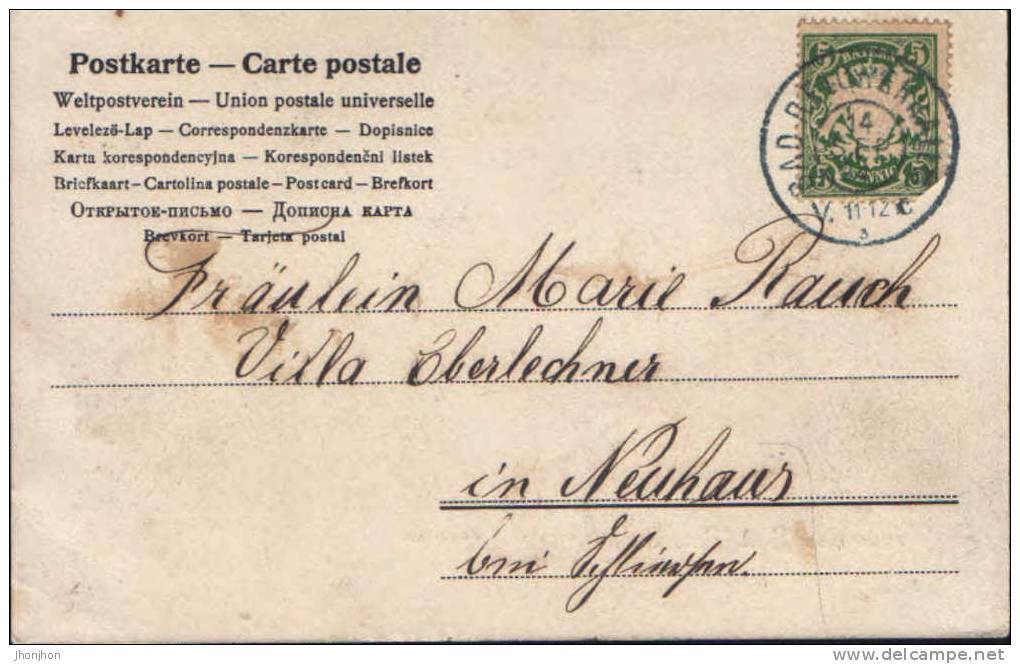 Postkarte — Carte postale
Weltpostverein — Union postale universelle
Levelező-Lap — Correspondenzkarte — Dopisnice
Karta korespondencyjna — Korespondenční listek
Briefkaart — Cartolina postale — Post card — Brefkort
Открытое-письмо — Дописна карта
Brevkort — Tarjeta postal
5 5
BAYERN
14
PFENNIG
5 5
V. 11-12
3
Fräulein Marie Rausch
Villa Oberlechner
in Neuhaus
bei Schliersee.
jhonjhon
www.delcampe.net